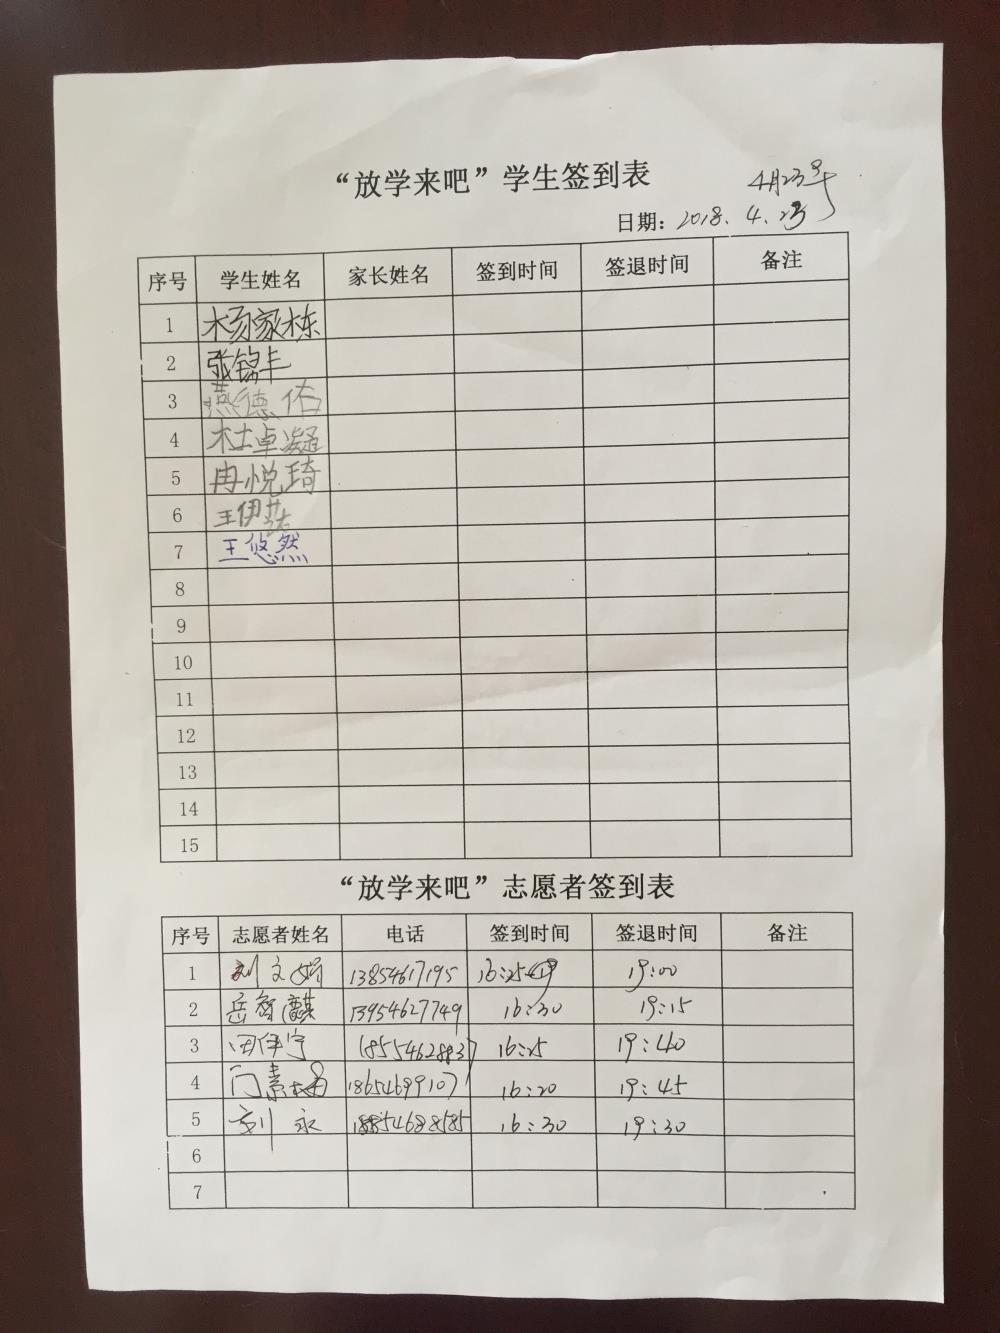 “放学来吧”学生签到表
4月23号
日期：2018.4.23
序号 学生姓名 家长姓名 签到时间 签退时间 备注
1 杨家栋
2 张锦丰
3 燕德佑
4 杜卓凝
5 冉悦琦
6 王伊
7 王悠然
8
9
10
11
12
13
14
15
“放学来吧”志愿者签到表
序号 志愿者姓名 电话 签到时间 签退时间 备注
1 刘文娟 13854617195 16:25 19:00
2 岳智麒 13954627749 16:30 19:15
3 田伊宁 18554628837 16:25 19:40
4 门素梅 18654699107 16:20 19:45
5 刘永 18854688585 16:30 19:30
6
7